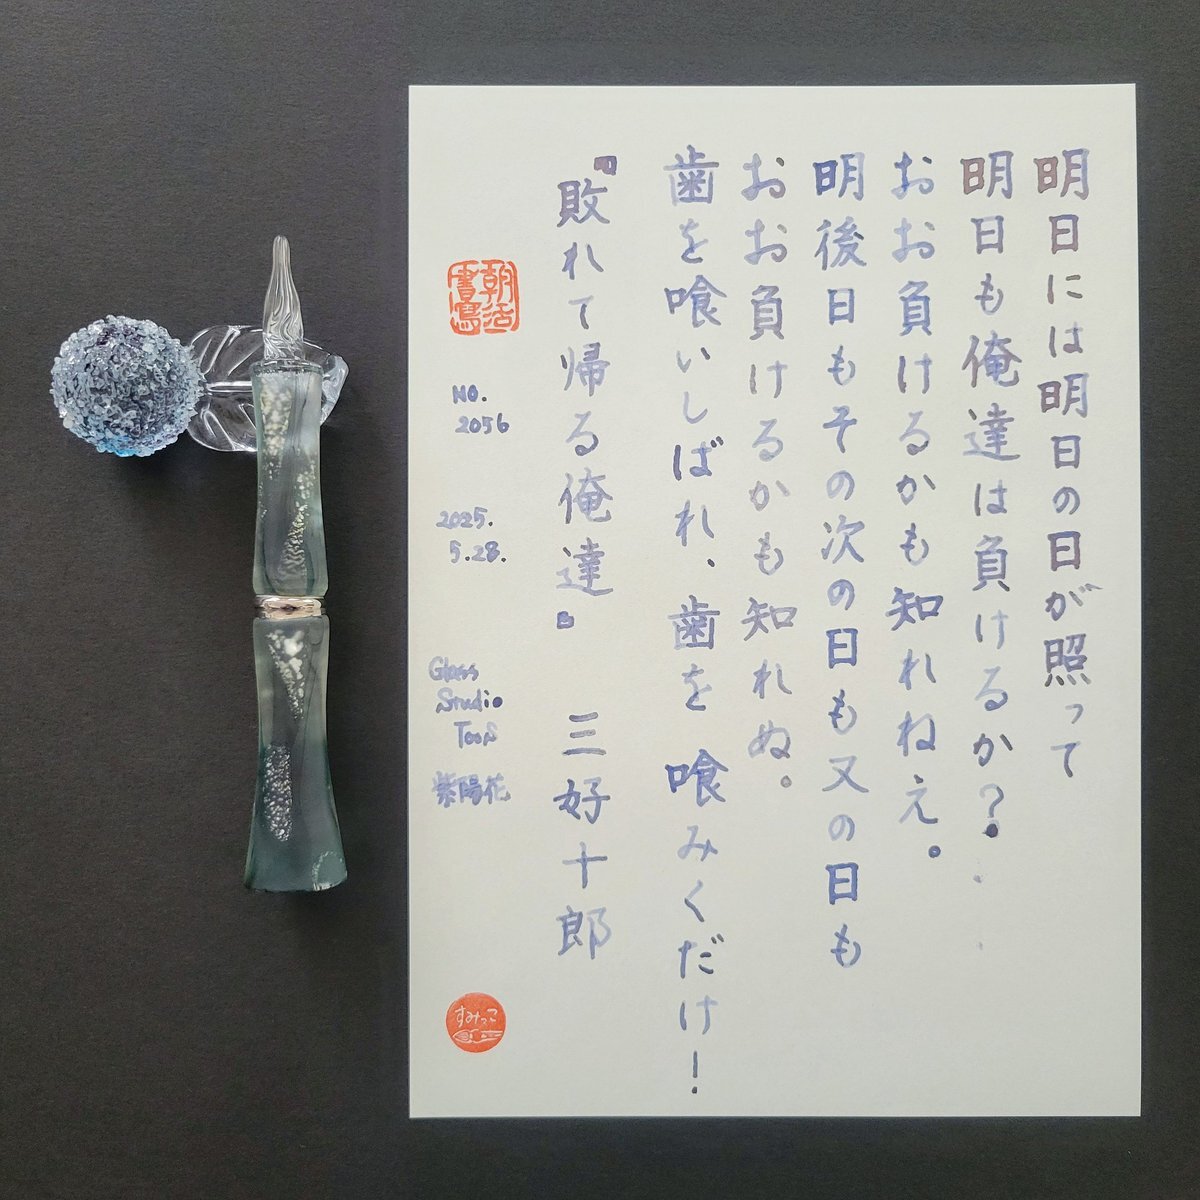 明日には明日の日が照って
明日も俺達は負けるか?
おお負けるかも知れねえ。
明後日もその次の日も又の日も
おお負けるかも知れぬ。
歯を喰いしばれ、歯を喰みくだけ!
『敗れて帰る俺達』 三好十郎
朝活書写
NO.
2056
2025.
5.28.
Glass
Studio
TooS
紫陽花
すみっこ